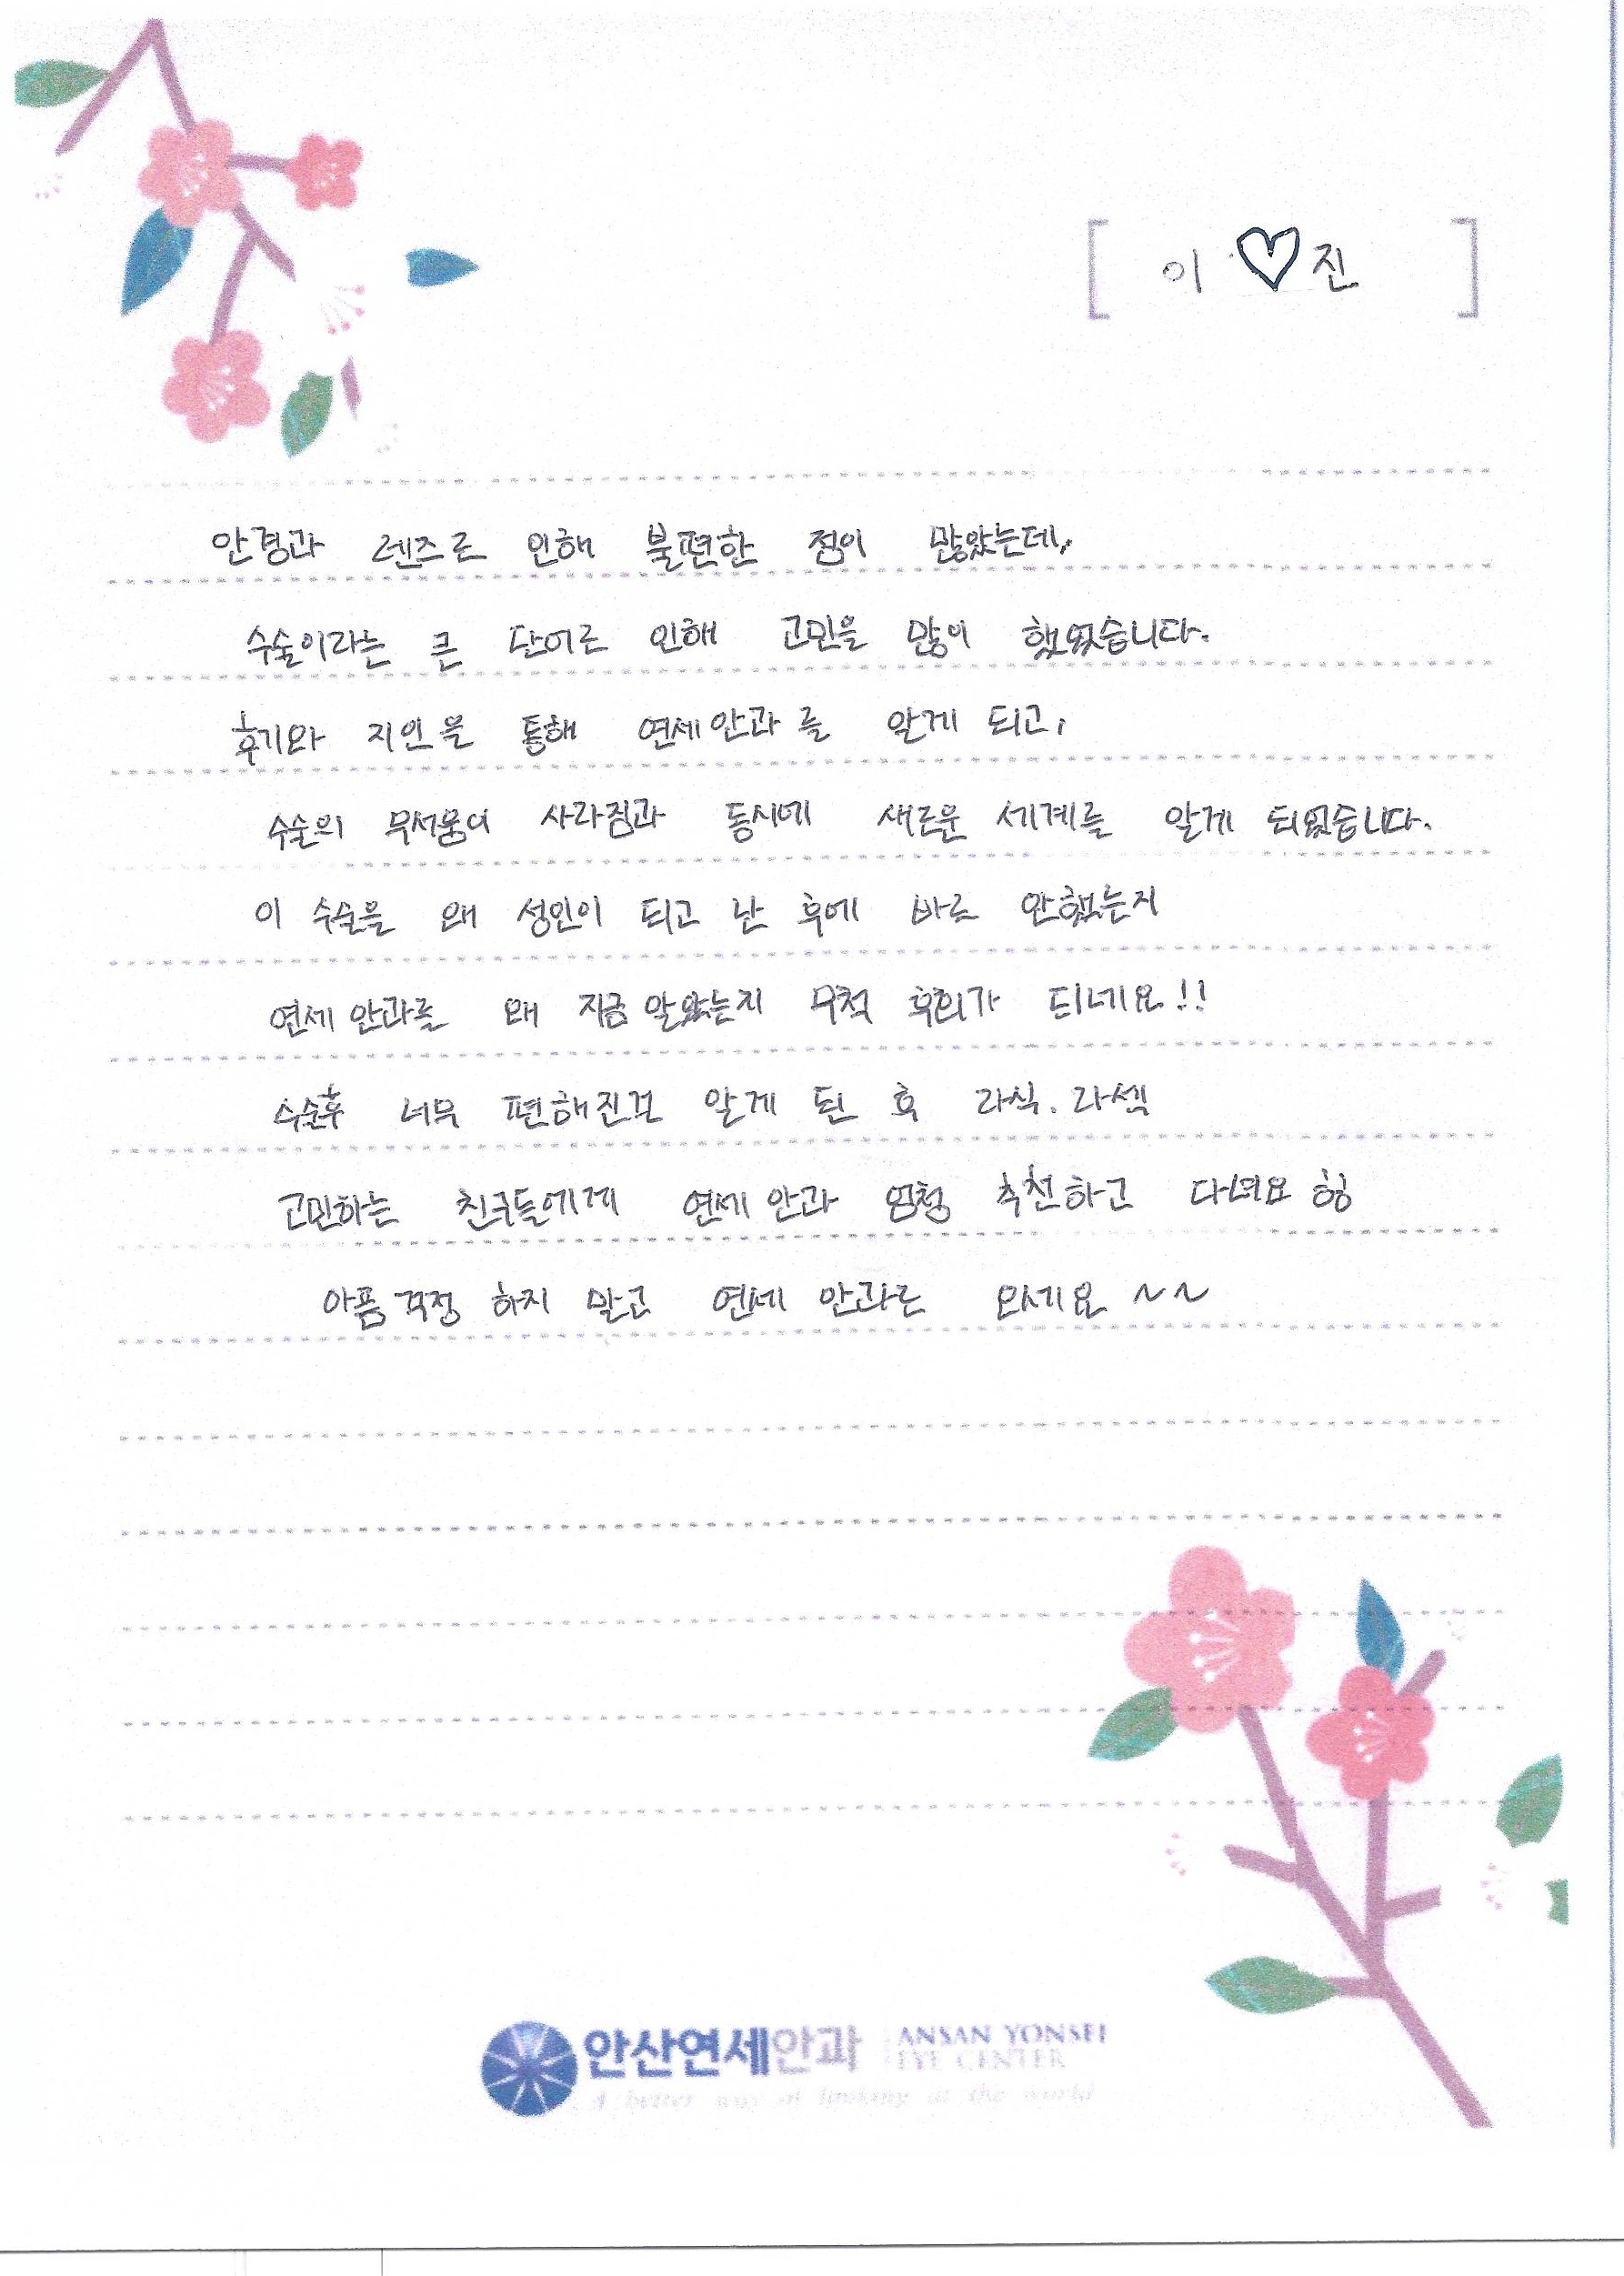 [ 이 ♡ 진 ]
안경과 렌즈로 인해 불편한 점이 많았는데,
수술이라는 큰 단어로 인해 고민을 많이 했었습니다.
후기와 지인을 통해 연세안과를 알게 되고,
수술의 무서움이 사라짐과 동시에 새로운 세계를 알게 되었습니다.
이 수술을 왜 성인이 되고 난 후에 바로 안했는지
연세 안과를 왜 지금 알았는지 무척 후회가 되네요!!
수술후 너무 편해진걸 알게 된 후 라식. 라섹
고민하는 친구들에게 연세 안과 엄청 추천하고 다녀요 힝
아픔 걱정 하지 말고 연세 안과로 오세요 ~~
안산연세안과 ANSAN YONSEI
EYE CENTER
A better way of looking at the world